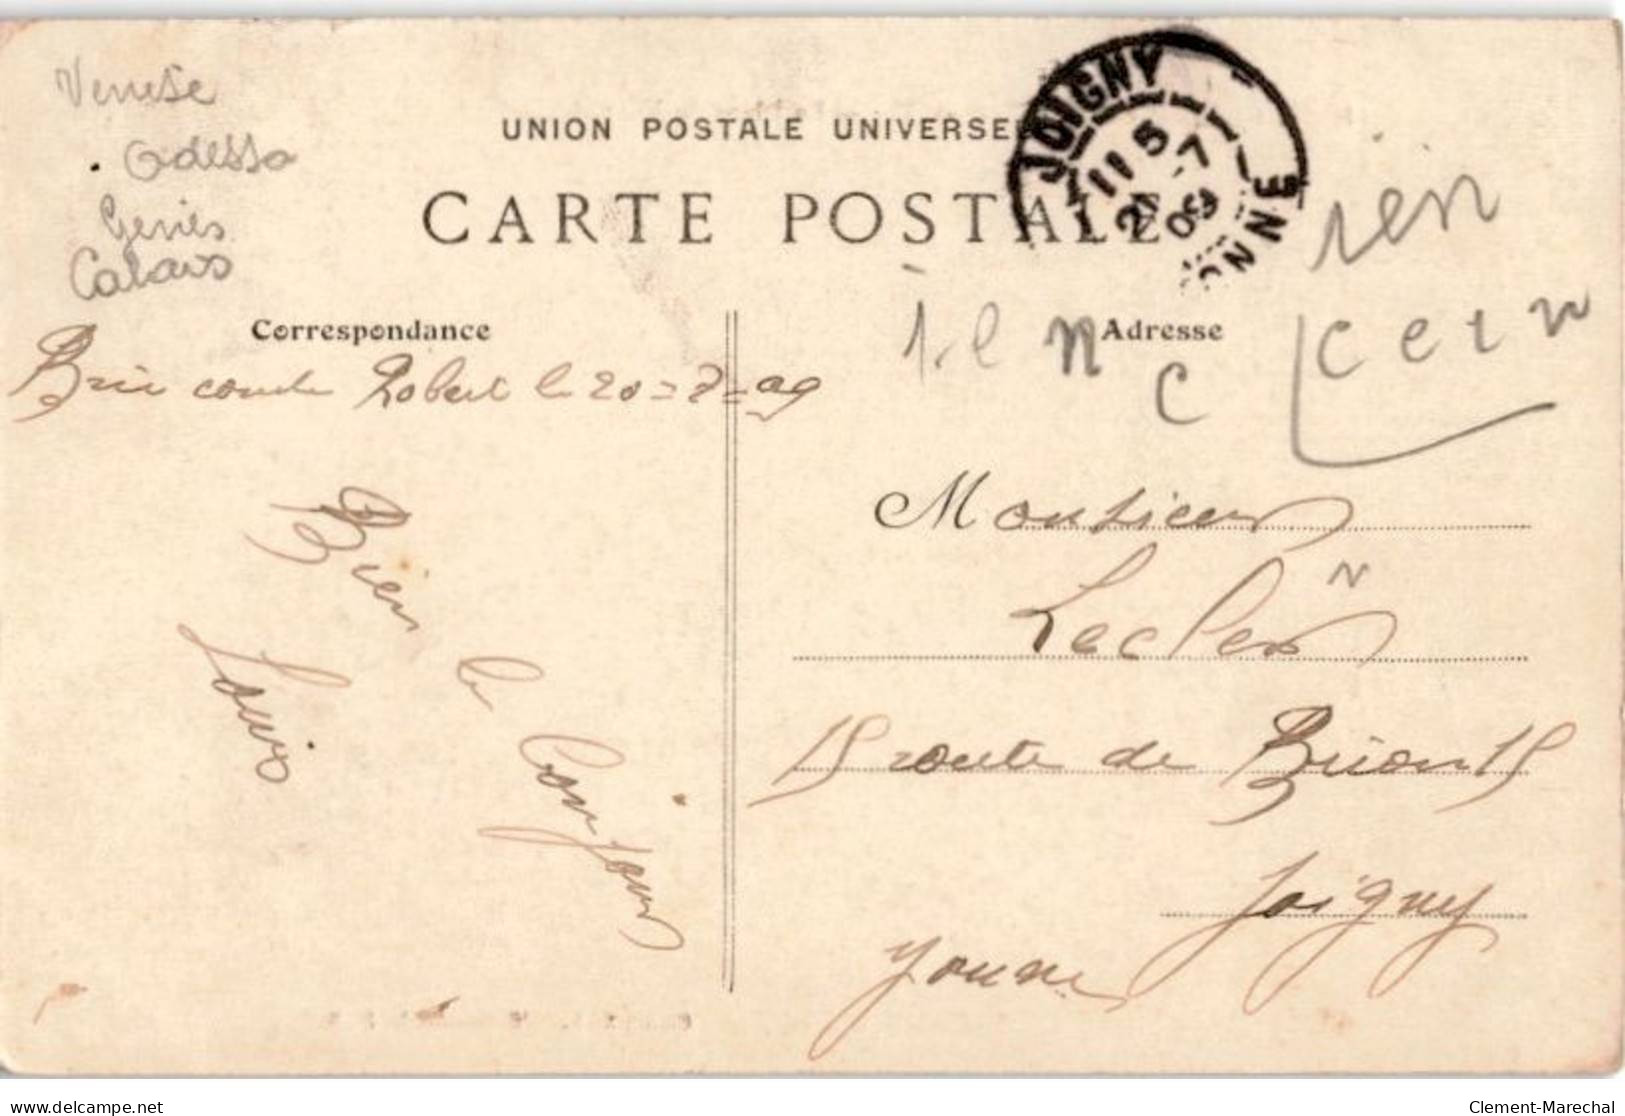 Venise
Odessa
Gênes
Calais
UNION POSTALE UNIVERSE
CARTE POSTALE
JOIGNY
YONNE
11 5
21 -7
09
ien
i e n
c
c e i n
Correspondance
Adresse
Brie comte Robert le 20=7=09
Bien le Bonjour
Louis
Monsieur
Leclerc
15 route de Brion 15
Joigny
Yonne
delcampe.net
Clement-Marechal